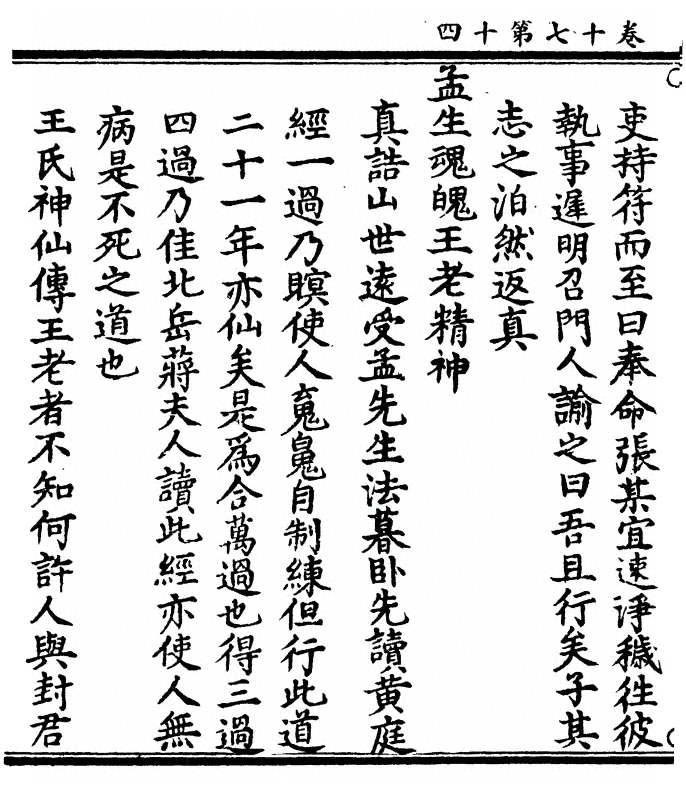 卷十七第十四
吏持符而至曰奉命張某宜速淨穢徃彼
執事遲明召門人諭之曰吾且行矣子其
志之泊然返真
孟生魂魄王老精神
真誥山世逺受孟先生法暮卧先讀黄庭
經一過乃瞑使人䰟鬽自制練但行此道
二十一年亦仙矣是爲合萬過也得三過
四過乃佳北岳蔣夫人讀此經亦使人無
病是不死之道也
王氏神仙傳王老者不知何許人與封君